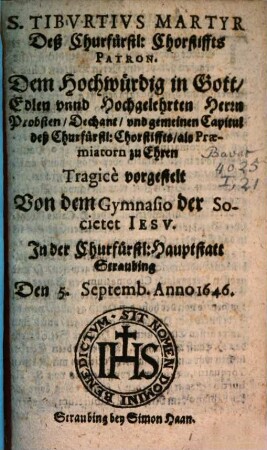 S. TIBVRTIVS MARTYR
Deß Churfürstl: Chorstiffts
PATRON.
Dem Hochwürdig in Gott/
Edlen vnnd Hochgelehrten Herrn
Probsten/ Dechant/ vnd gemeinen Capitul
deß Churfürstl: Chorstiffts/ als Præ-
miatorn zu Ehren
Bavar.
4025
I, 21
Tragicè vorgestelt
Von dem Gymnasio der So-
cietet IESV.
In der Churfürstl: Hauptstatt
Straubing
Den 5. Septemb. Anno 1646.
SIT NOMEN DOMINI BENEDICTVM
IHS
Straubing bey Simon Haan.